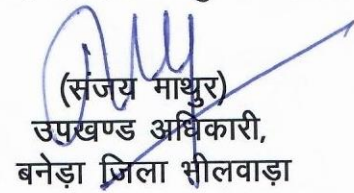 (संजय माथुर)
उपखण्ड अधिकारी,
बनेड़ा जिला भीलवाड़ा